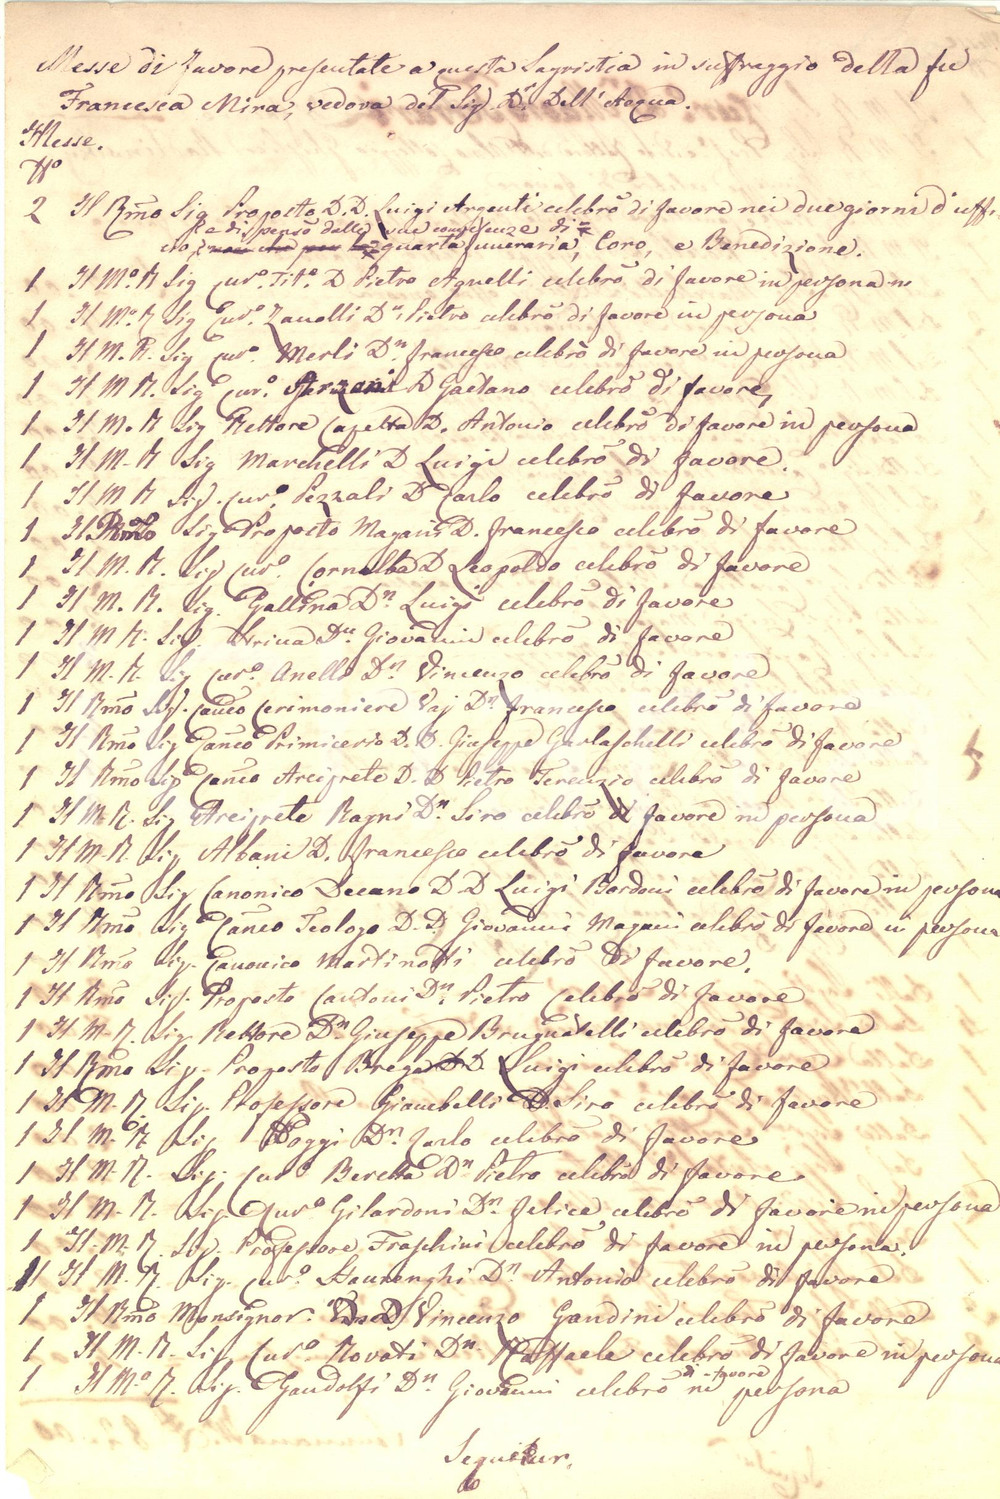 Messe di favore presentate a questa Sagristia in suffraggio della fu
Francesca Mira, vedova del Sig. Dr. Dell' Acqua.
Messe.
No
2 Il Rmo Sig Proposto D.D. Luigi Argenti celebrò di favore nei due giorni d'uffi-
e dispensò dalle sue competenze di
cio, quarta funeraria, Coro, e Benedizione.
1 Il Mo. R Sig Curo. Tito. D Pietro Agnelli celebrò di favore in persona
1 Il Mo. R Sig Curo. Zanolli Dn. Pietro celebrò di favore in persona
1 Il M. R. Sig Curo. Merli Dn. francesco celebrò di favore in persona
1 Il M R. Sig Curo. D Gaetano celebrò di favore,
1 Il M. R Sig Rettore Capetta D. Antonio celebrò di favore in persona
1 Il M. R Sig Marchelli D Luigi celebrò di favore.
1 Il M R Sig. Curo. Pezzali D Carlo celebrò di favore
1 Il Rmo Sig Proposto Magani D. francesco celebrò di favore
1 Il M. R. Sig Curo. Cornalba D Leopoldo celebrò di favore
1 Il M. R. Sig. Gallina Dn Luigi celebrò di favore
1 Il M R. Sig. Dn Giovanni celebrò di favore
1 Il M. R. Sig Curo. Anelli Dn Vincenzo celebrò di favore
1 Il Rmo Sig. Canco Cerimoniere Vaj Dn francesco celebrò di favore
1 Il Rmo Sig Canco Primicerio D. D. Giuseppe Garlaschelli celebrò di favore
1 Il Rmo Sig Canco Arciprete D. D Pietro Terenzio celebrò di favore
1 Il M. R. Sig Arciprete Ragni Dn. Siro celebrò di favore in persona
1 Il M. R Sig Albani D. francesco celebrò di favore
1 Il Rmo Sig Canonico Decano D D Luigi Bardoni celebrò di favore in persona
1 Il Rmo Sig Canco Teologo D. D. Giovanni Magani celebrò di favore in persona
1 Il Rmo Sig. Canonico Martinotti celebrò di favore.
1 Il Rmo Sig. Proposto Cantoni Dn. Pietro celebrò di favore
1 Il M. R. Sig Rettore Dn Giuseppe Brugnatelli celebrò di favore
1 Il Rmo Sig. Proposto Brega D D Luigi celebrò di favore
1 Il M. R. Sig. Professore Giambelli D. Siro celebrò di favore
1 Il M. R Sig Poggi Dn. Carlo celebrò di favore
1 Il M. R. Sig. Curo Beretta Dn Pietro celebrò di favore
1 Il M. R. Sig. Curo. Gilardoni Dn. felice celebrò di favore in persona
1 Il M. R. Sig. Professore Fraschini celebrò di favore in persona.
1 Il M. R. Sig. Curo. Dn. Antonio celebrò di favore
1 Il Rmo Monsignor. Vincenzo Gandini celebrò di favore
1 Il M. R. Sig. Curo. Rovati Dn. Raffaele celebrò di favore in persona
di favore
1 Il Mo. R. Sig. Gandolfi Dn. Giovanni celebrò in persona
Sequitur.